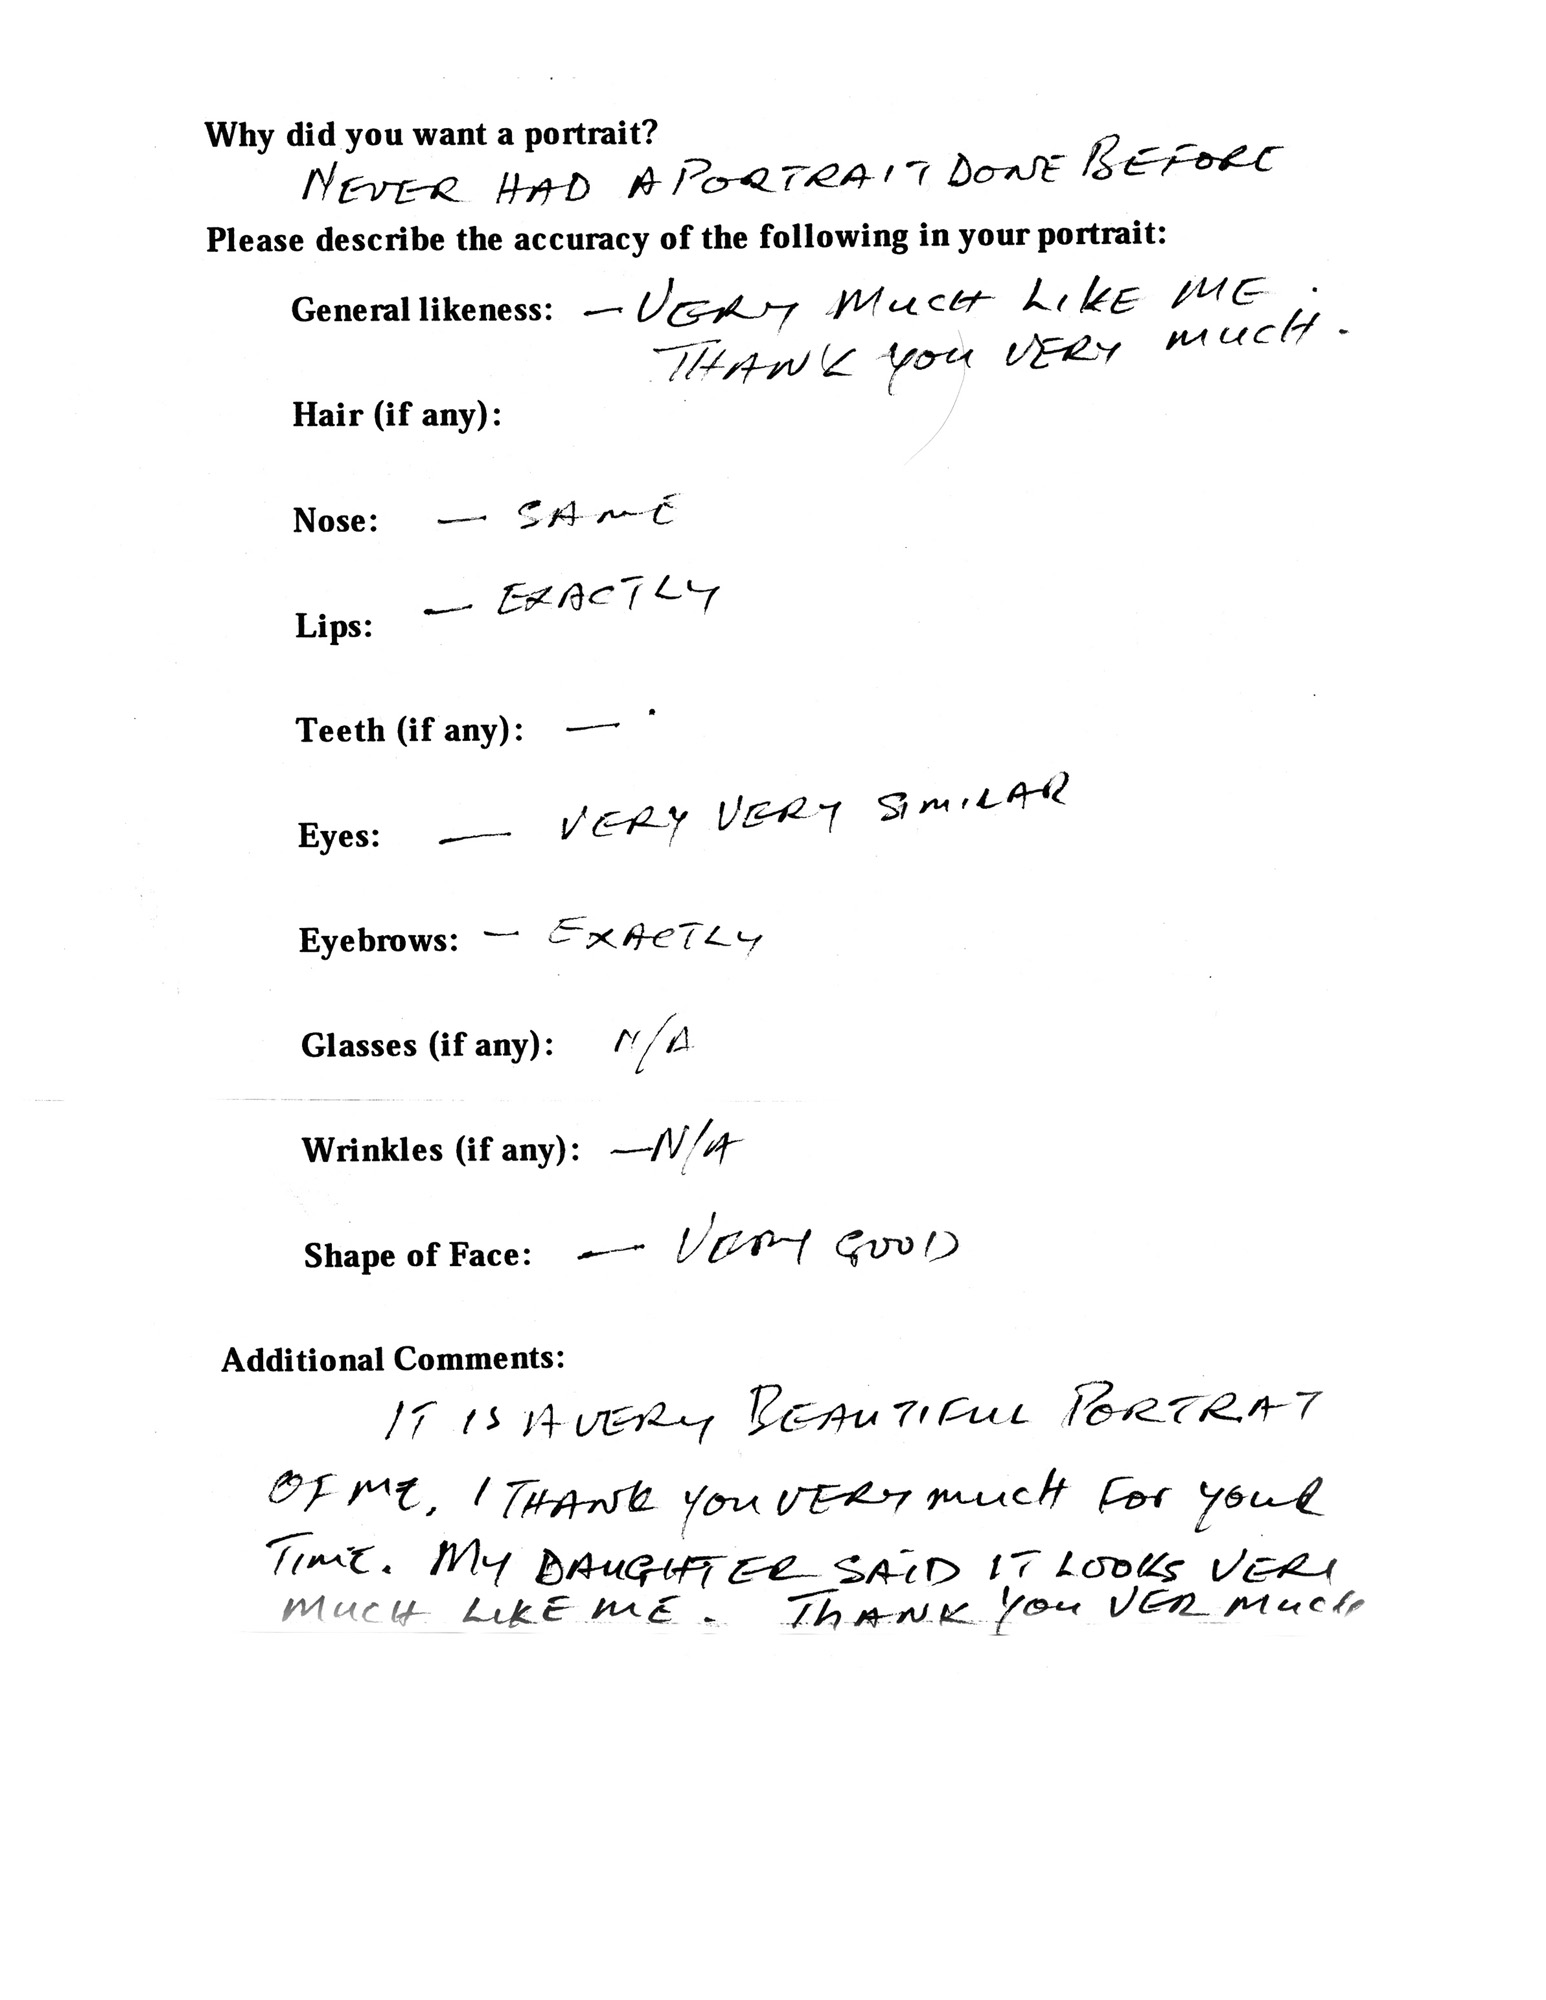 Why did you want a portrait?
NEVER HAD A PORTRAIT DONE BEFORE
Please describe the accuracy of the following in your portrait:
General likeness: — VERY MUCH LIKE ME.
THANK YOU VERY MUCH.
Hair (if any):
Nose: — SAME
Lips: — EXACTLY
Teeth (if any): — .
Eyes: — VERY VERY SIMILAR
Eyebrows: — EXACTLY
Glasses (if any): N/A
Wrinkles (if any): — N/A
Shape of Face: — VERY GOOD
Additional Comments:
IT IS A VERY BEAUTIFUL PORTRAT
OF ME. I THANK YOU VERY MUCH FOR YOUR
TIME. MY DAUGHTER SAID IT LOOKS VERY
MUCH LIKE ME. THANK YOU VER MUCH